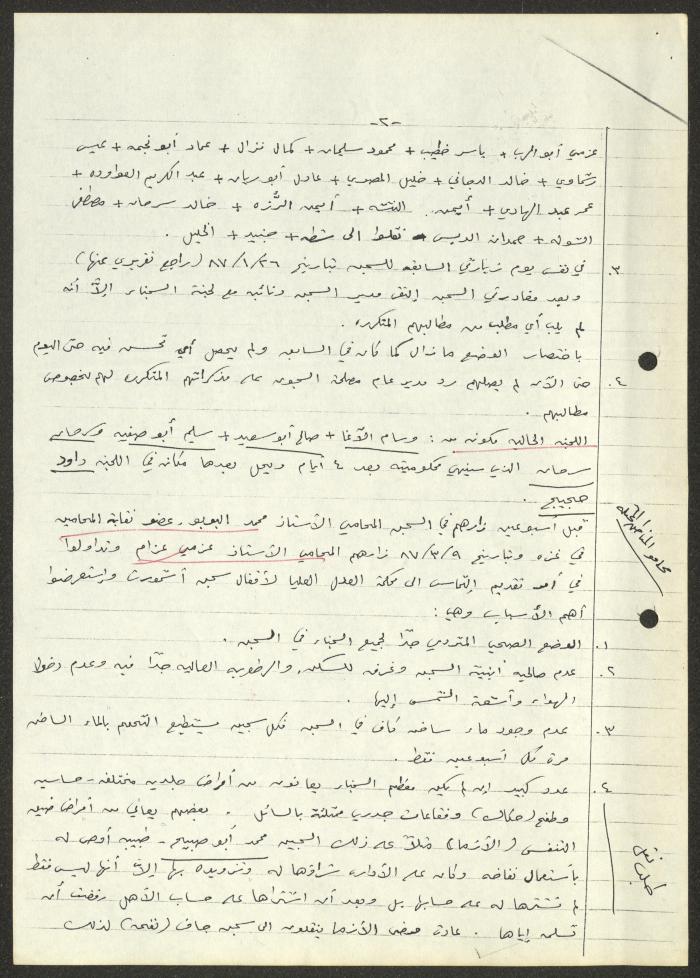 -٢-
عزمي أبو الرب + ياسر خطيب + محمود سليمان + كمال نزال + عماد أبو نجمه + عيسى
+ خالد الدجاني + خليل المصري + عادل أبو ريان + عبد الكريم العواوده +
عمر عبد الهادي + أيمن النتشه + أيمن الرُّزه + خالد سرحان + مصطفى
+ حمدان الديس نقلوا الى شطه + جنيد + الخليل .
٣. في نفس يوم زيارتي السابقه للسجن بتاريخ ٨٧/١/٢٦ (راجع تقريري عنها)
وبعد مغادرتي السجن إلتقى مدير السجن ونائبه مع لجنة السجناء إلاّ أنه
لم يلبِ أي مطلب من مطالبهم المتكرره .
باختصار الوضع ما زال كما كان في السابق ولم يحصل أي تحسن فيه حتى اليوم
٤. حتى الآن لم يصلهم رد مدير عام مصلحة السجون على مذكراتهم المتكرره لهم بخصوص
مطالبهم .
اللجنة الحاليه مكونه من : وسام الآغا + صالح أبو سعيد + سليم أبو صفيه وسرحان
سرحان الذي سينهي محكوميته بعد ٤ أيام ويحل بعدها مكانه في اللجنه داود
.
قبل أسبوعين زارهم في السجن المحامي الأستاذ محمد البوبو، عضو نقابة المحامين
في غزه وبتاريخ ٨٧/٣/٩ زارهم المحامي الأستاذ عزمي عزام وتداولوا
في أمر تقديم إلتماس الى محكمة العدل العليا لأقفال سجن أشمورت واستعرضوا
أهم الأسباب وهي :
١. الوضع الصحي المتردي جدًا لجميع السجناء في السجن .
٢. عدم صالحية أبنية السجن وغرفه للسكن، والرطوبه العاليه جدًا فيه وعدم دخول
الهواء وأشعة الشمس إليها .
٣. عدم وجود ماء ساخن كاف في السجن فكل سجين يستطيع التحمم بالماء الساخن
مرة كل أسبوعين فقط .
٤. عدد كبير ان لم يكن معظم السجناء يعانون من أمراض جلديه مختلفه - حساسيه
وطفح (حكاك) وفقاعات جدري ممتلئة بالسائل . بعضهم يعاني من أمراض ضيق
التنفس (الأزما) مثلاً على ذلك السجين محمد أبو صبيح - طبيبه أوصى له
بأستعمال نفاخه وكان على الأداره شراؤها له وتزويده بها إلاّ أنها ليس فقط
لم تشترها له على حسابها بل وبعد أن اشتراها على حساب الأهل رفضت أن
تسلمه إياها . عادة مرضى الأزما ينقلون الى سجن جاف (نفحه) لذلك